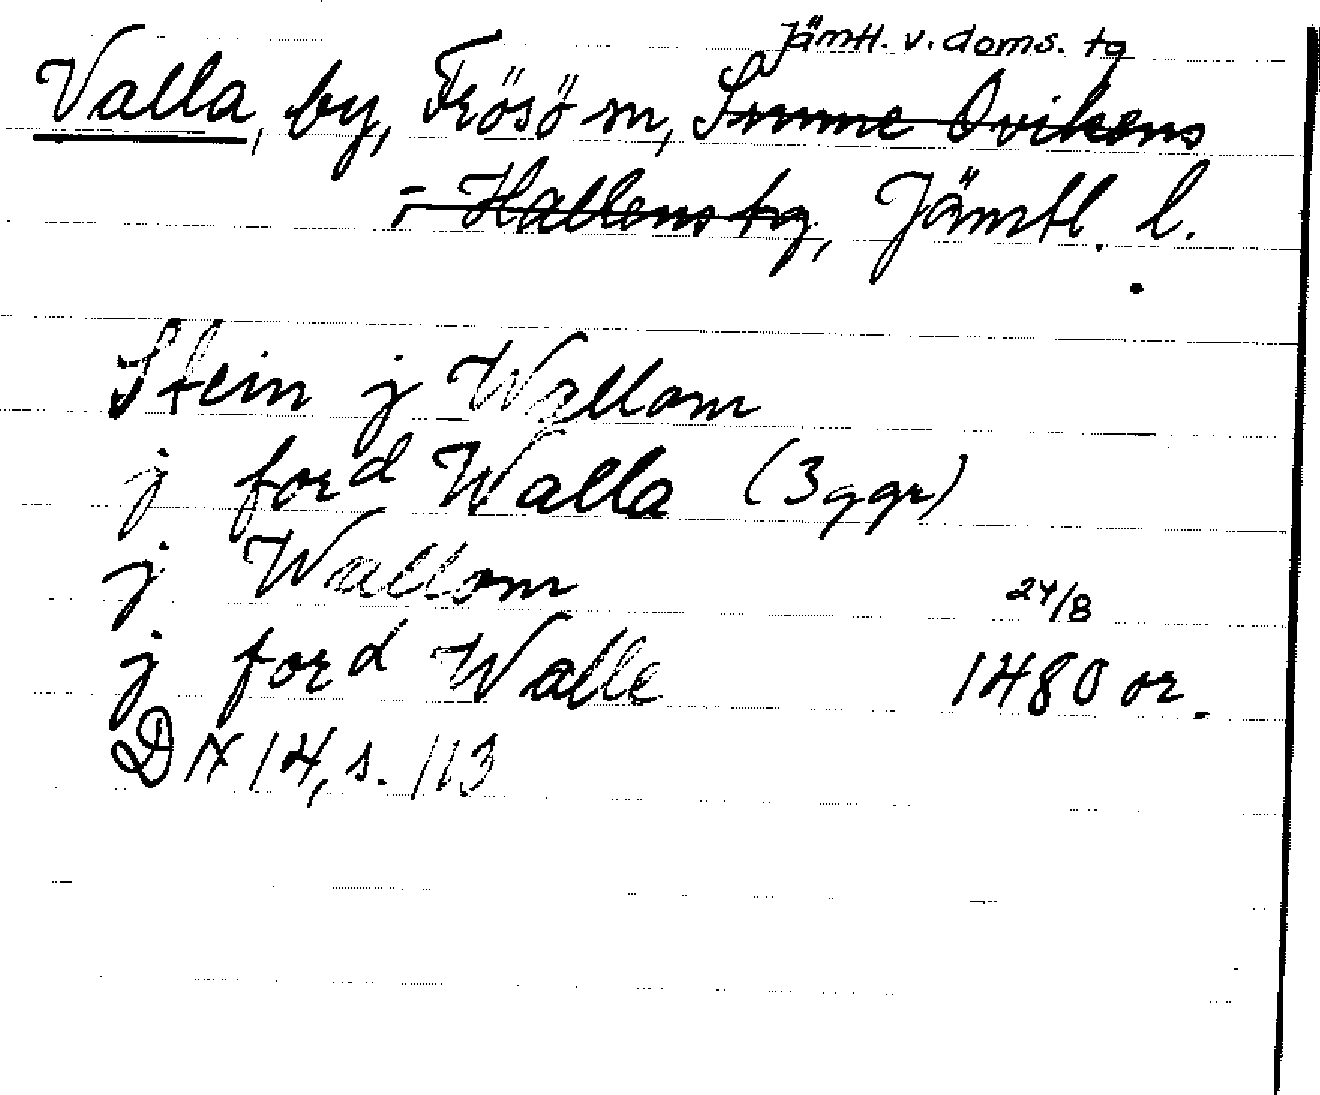 Jämtl. v. doms. tg
Valla, by, Frösö sn, Sunne Ovikens
- Hallens tg, Jämtl. l.
Stein j Wallom
j ford Walla (3 ggr)
j Wallom
24/8
j ford Walle 1480 or.
DN 14, s. 113